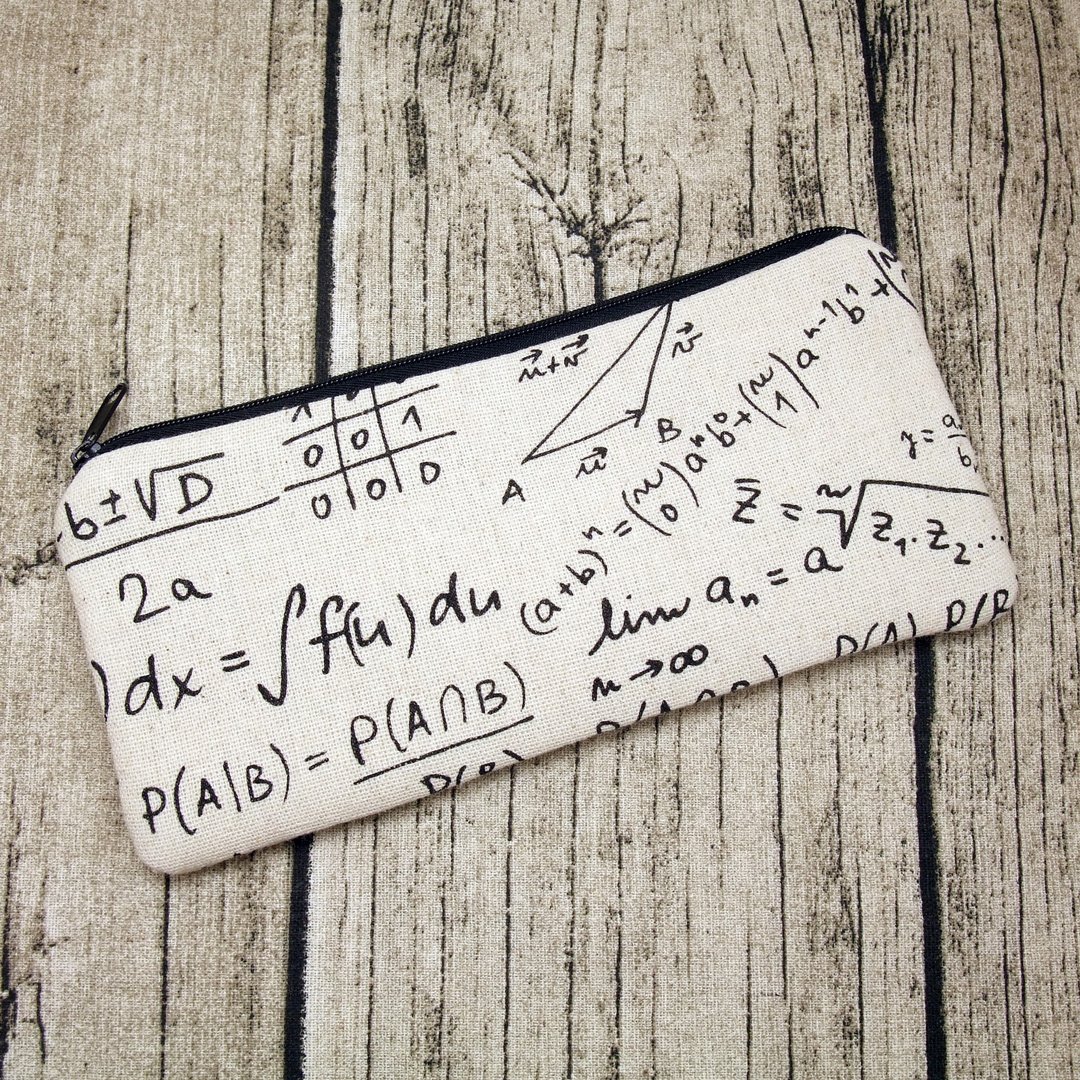 b ± √D
2a
1 0
0 0 1
0 0 D
u⃗+v⃗
v⃗
u⃗
A B
(a+b)ⁿ = (n 0) aⁿ b⁰ + (n 1) aⁿ⁻¹ b¹ + (n
y = a
b
z̄ = ⁿ√z₁·z₂...
) dx = ∫ f(u) du
lim aₙ = a
n→∞
P(A|B) = P(A∩B)
P(B)
P(A∩B) P(A) P(B